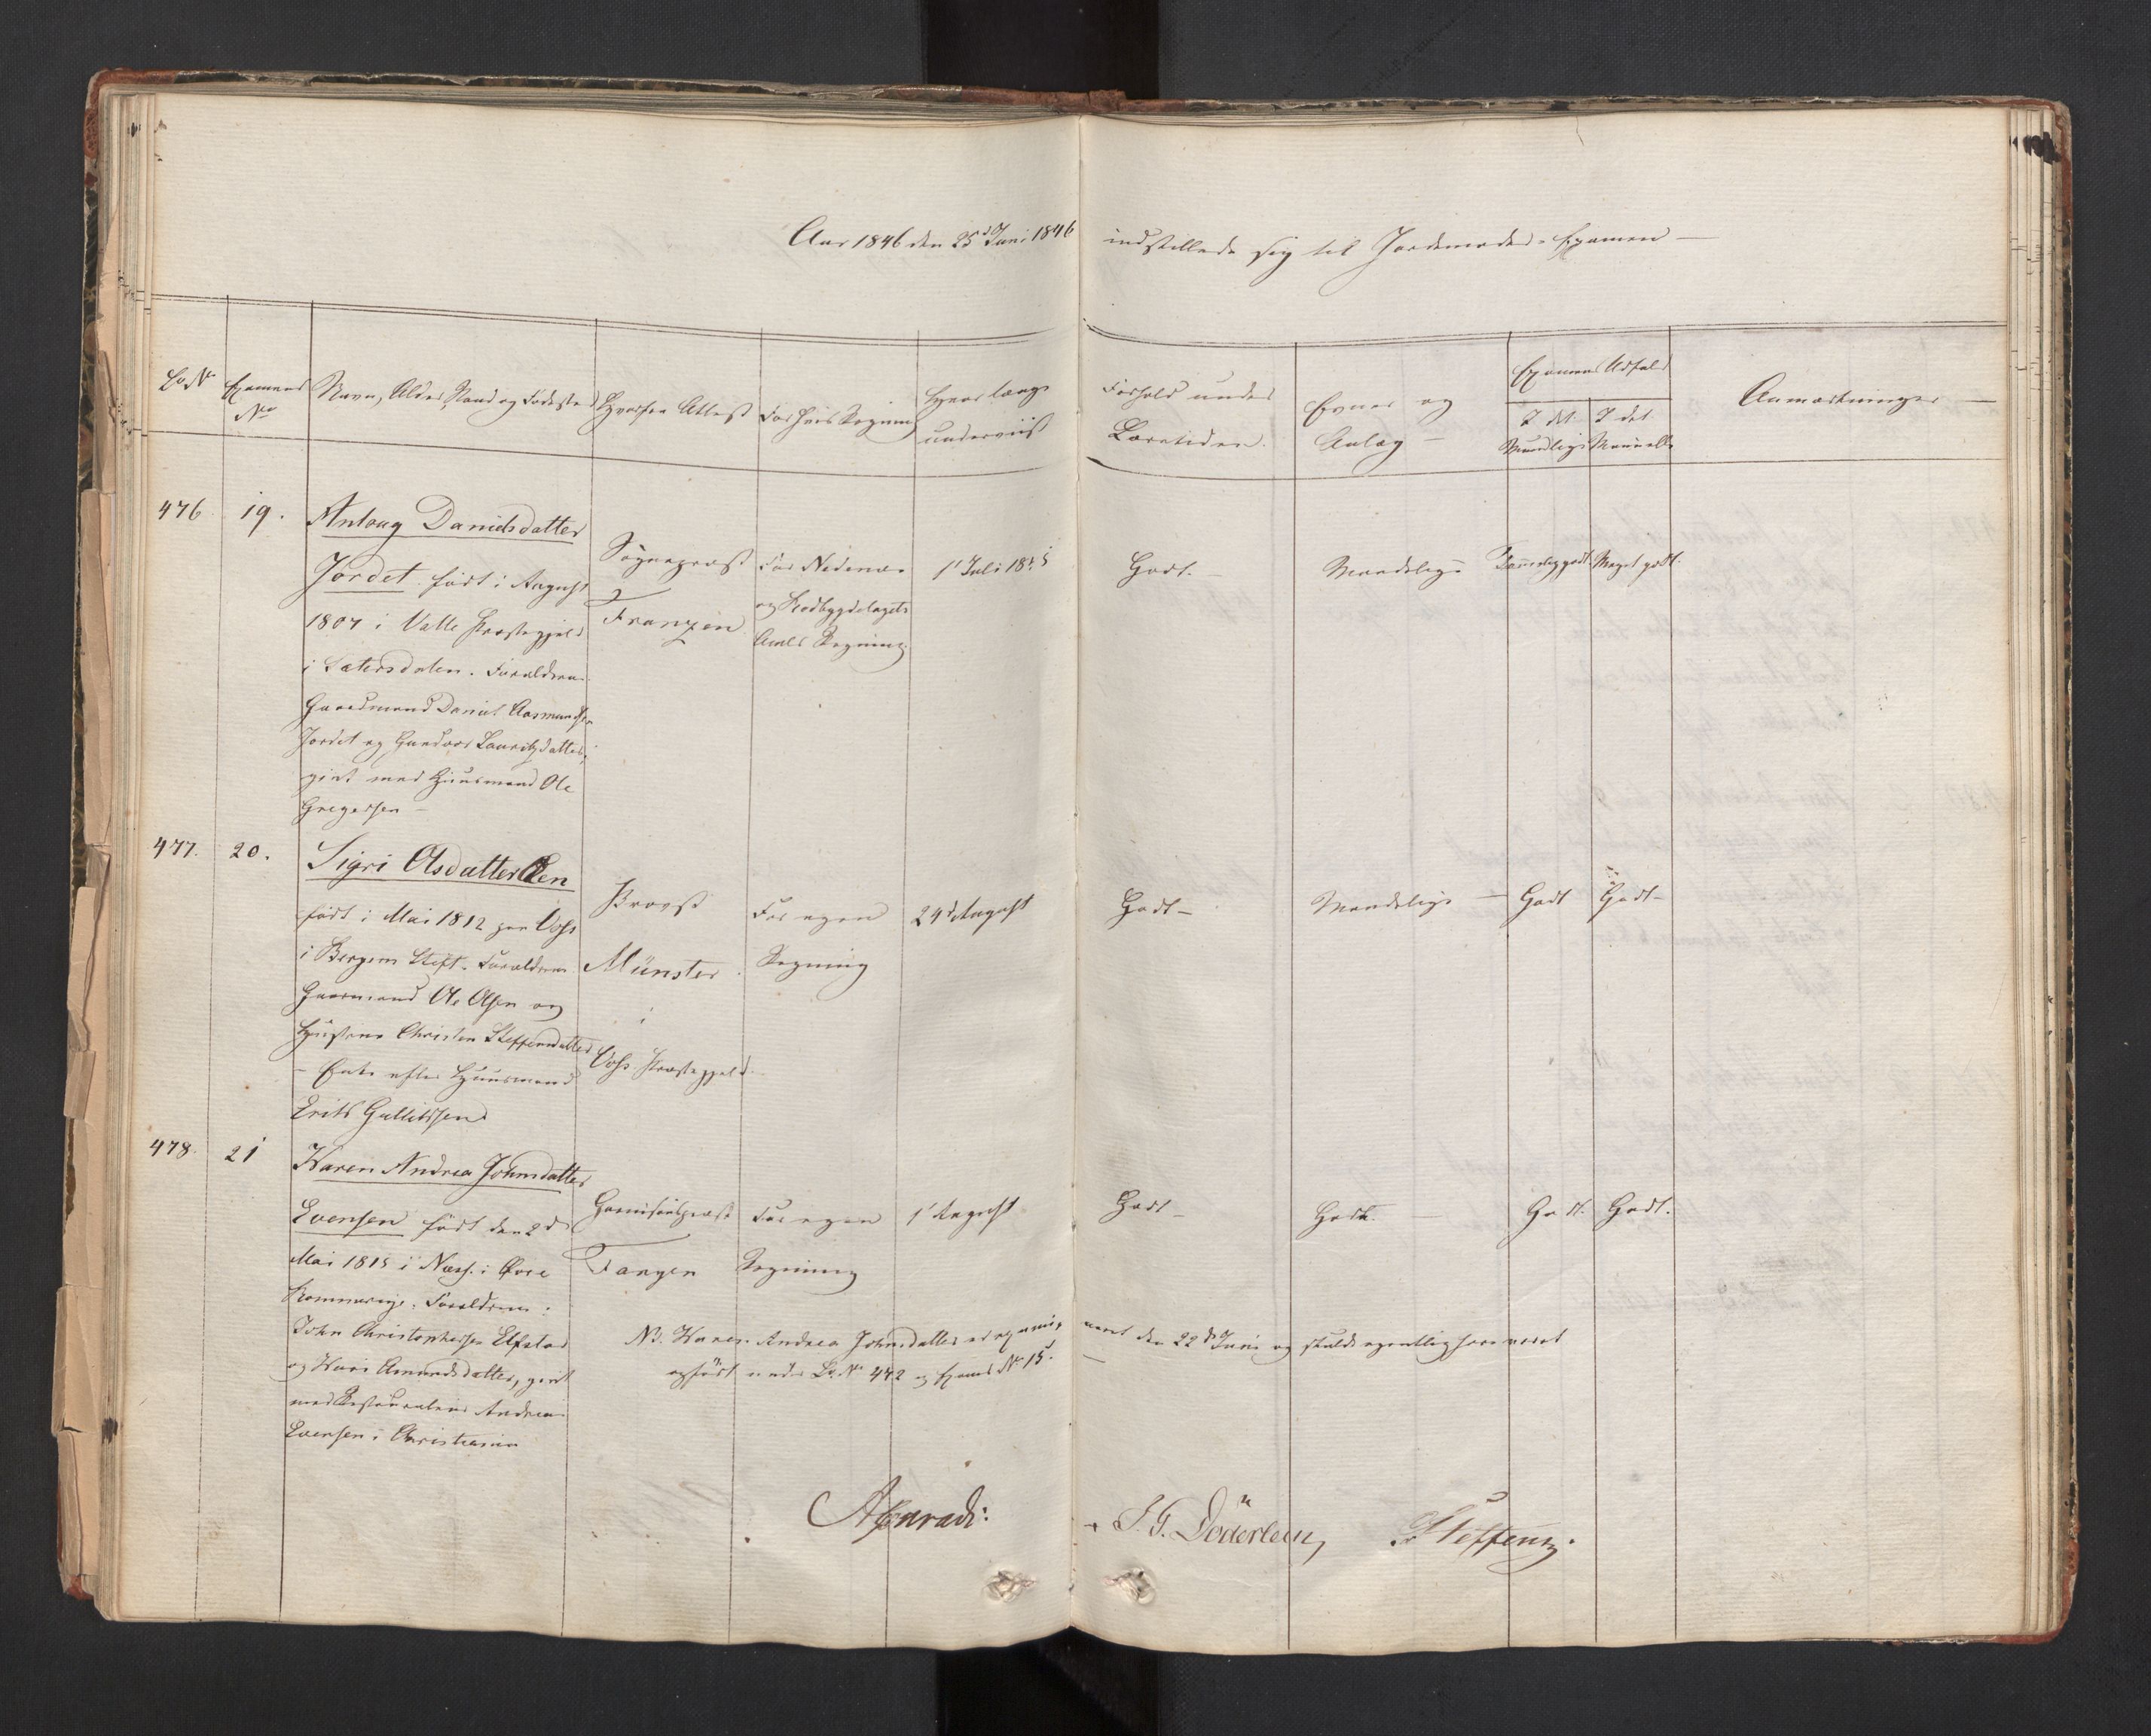 Aar 1846 den 25de Juni 1846 indstillede sig til Jordemoder-Examen —
Lb. No
Examens No
Navn, Alder, Stand og Fødested
Hvorfra Attest
For hvis Regning
Hvor længe underviist
Forhold under Læretiden.
Evner og Anlæg —
Examens Udfald
I det Mundlige
I det Manuelle
Anmærkninger —
476
19.
Antoug Danielsdatter
Jordet født i August
1807 i Valle Præstegjeld
i Sætersdalen. Forældrene
Gaardmand Daniel Aasmundsen
Jordet og Gundvor Lauritzdatter,
givt med Huusmand Ole
Gregersen —
Sognepræst
Franzen
For Nedenæs
og Raabygdelagets
Amts Regning
1' Juli 1845
Godt. —
Maadelige
Temmelig godt.
Meget godt.
477.
20.
Sigri Olsdatter
født i Mai 1812 paa Voss
i Bergens Stift. Forældrene
Gaardmand Ole Olsen og
Hustrue Christen Steffensdatter
— Enke efter Huusmand
Erik Gullikssen
Provst
Münster
i
Voss Præstegjeld
For egen
Regning
24de August
Godt —
Maadelige —
Godt
Godt —
478.
21
Karen Andrea Johnsdatter
Evensen født den 2den
Mai 1815 i Næss i Øvre
Rommerige. Forældrene:
John Christophersen Elfstad
og Kari Amundsdatter, givt
med Restaurateur Andreas
Evensen i Christiania
Garnisonspræst
Fangen
For egen
Regning
1' August
Godt —
Godt.
Godt.
Godt.
NB. Karen Andrea Johnsdatter er examineret den 22de Juni og skulde egentlig have været
opført under Lb. No 472 og Exams No 15. —
AConradi.
J. G. Döderlein,
F Steffens.